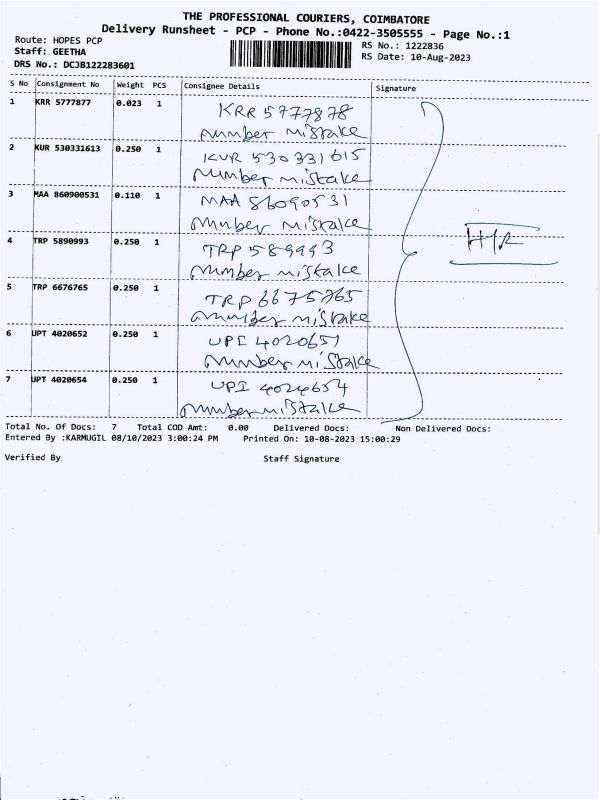 THE PROFESSIONAL COURIERS, COIMBATORE
Delivery Runsheet - PCP - Phone No.:0422-3505555 - Page No.:1
Route: HOPES PCP
Staff: GEETHA
DRS No.: DCJB122283601
RS No.: 1222836
RS Date: 10-Aug-2023
S No Consignment No Weight PCS Consignee Details Signature
1 KRR 5777877 0.023 1 KRR 5777878
number mistake
2 KUR 530331613 0.250 1 KUR 530331615
number mistake
3 MAA 860900531 0.110 1 MAA 86090531
number mistake
4 TRP 5890993 0.250 1 TRP 589993
number mistake
H/R
5 TRP 6676765 0.250 1 TRP 6675765
number mistake
6 UPT 4020652 0.250 1 UPI 4020651
number mistake
7 UPT 4020654 0.250 1 UPI 4024654
number mistake
Total No. Of Docs: 7 Total COD Amt: 0.00 Delivered Docs: Non Delivered Docs:
Entered By :KARMUGIL 08/10/2023 3:00:24 PM Printed On: 10-08-2023 15:00:29
Verified By Staff Signature